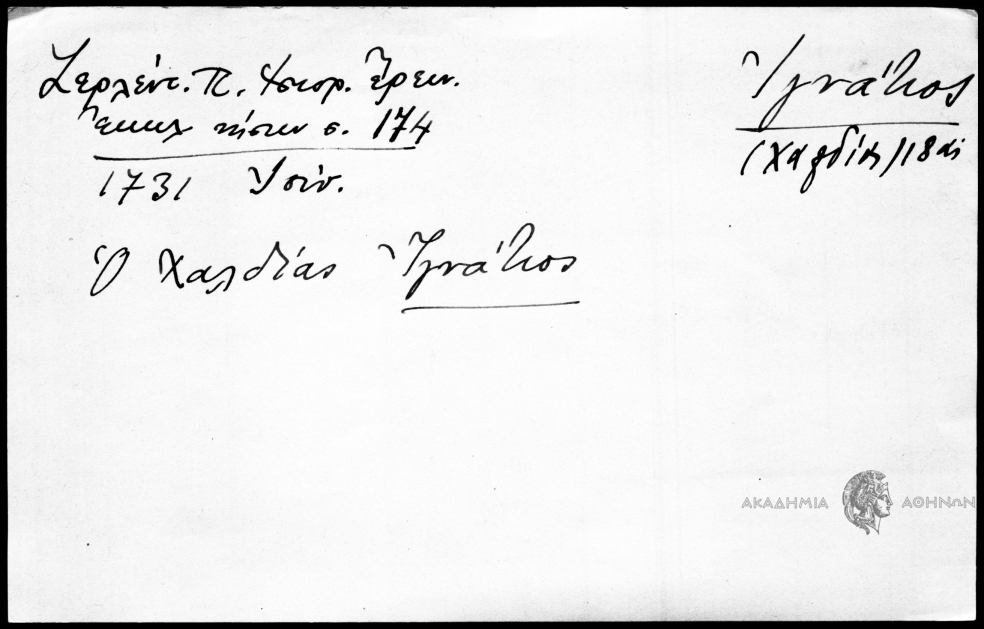 Ζερλέντ. Π. Ἱστορ. Ἔρευν.
Ἐκκλ νήσων σ. 174
1731 Ἰούν.
Ὁ Χαλδίας Ἰγνάτιος
Ἰγνάτιος
(Χαλδίας) 18 αἰ
ΑΚΑΔΗΜΙΑ ΑΘΗΝΩΝ